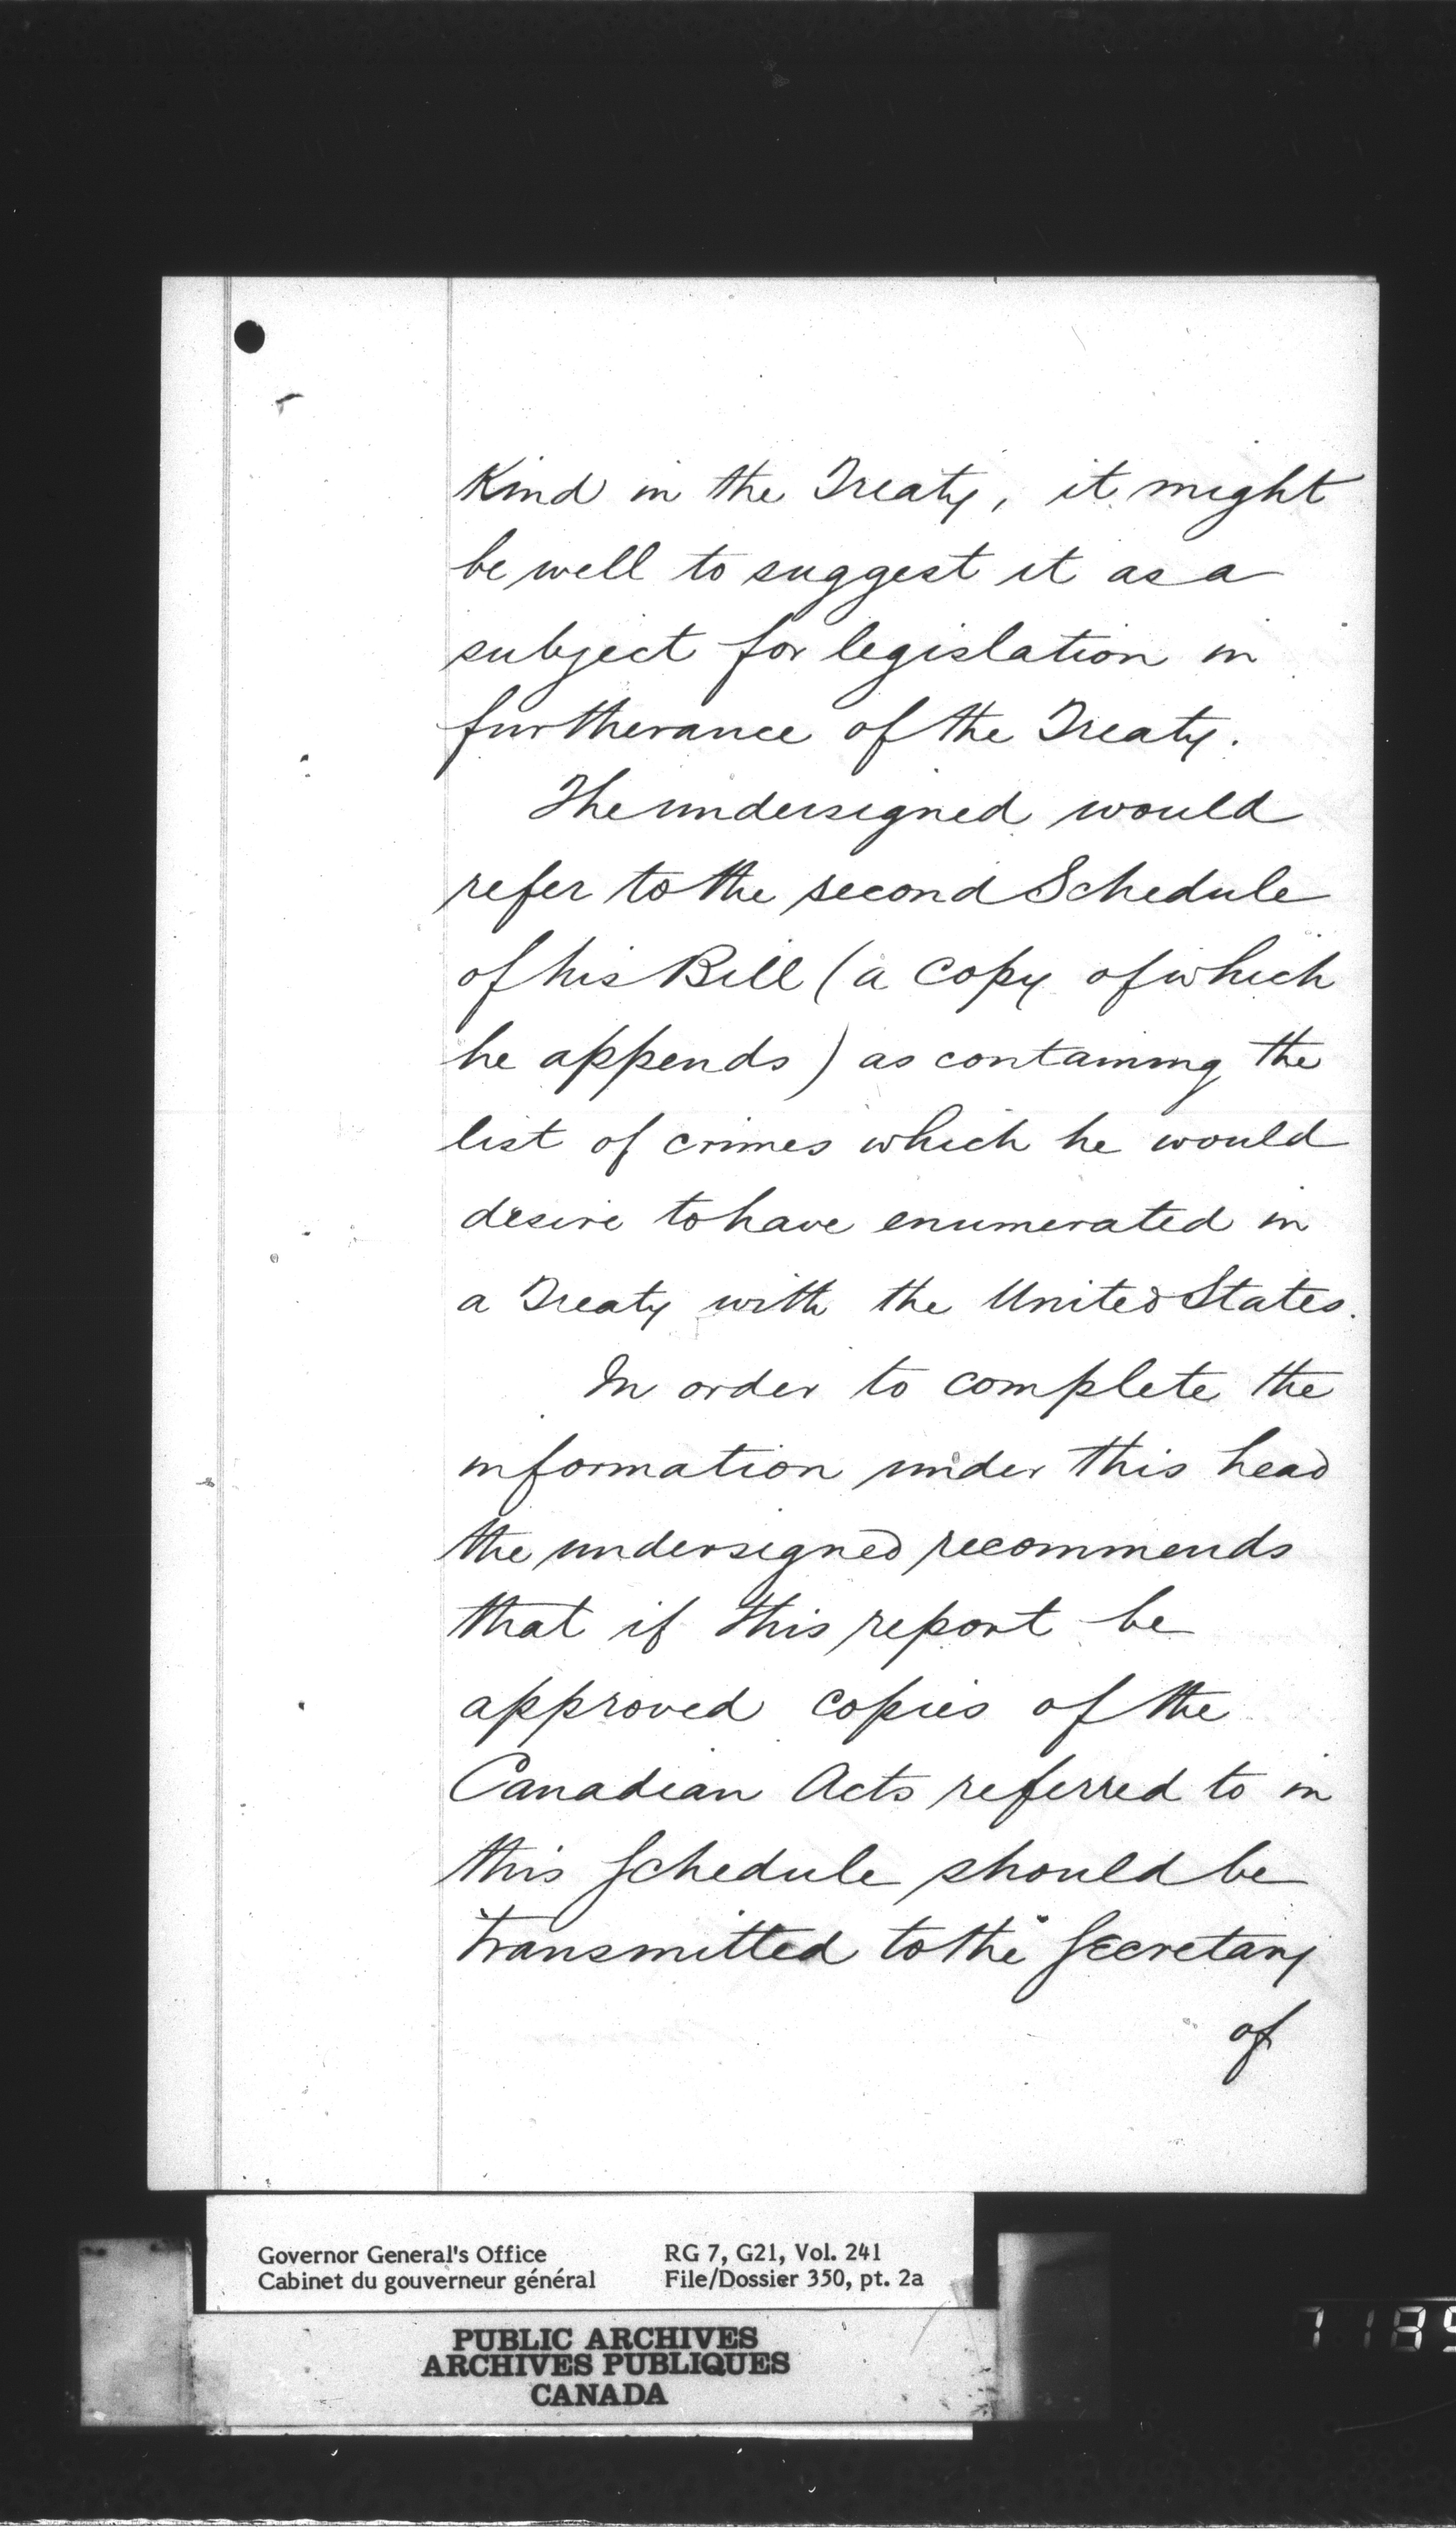 Kind in the Treaty, it might
be well to suggest it as a
subject for legislation in
furtherance of the Treaty.
The undersigned would
refer to the second Schedule
of his Bill (a copy of which
he appends) as containing the
list of crimes which he would
desire to have enumerated in
a Treaty with the United States.
In order to complete the
information under this head
the undersigned recommends
that if this report be
approved copies of the
Canadian Acts referred to in
this Schedule should be
transmitted to the Secretary
of
Governor General's Office
Cabinet du gouverneur général
RG 7, G21, Vol. 241
File/Dossier 350, pt. 2a
PUBLIC ARCHIVES
ARCHIVES PUBLIQUES
CANADA